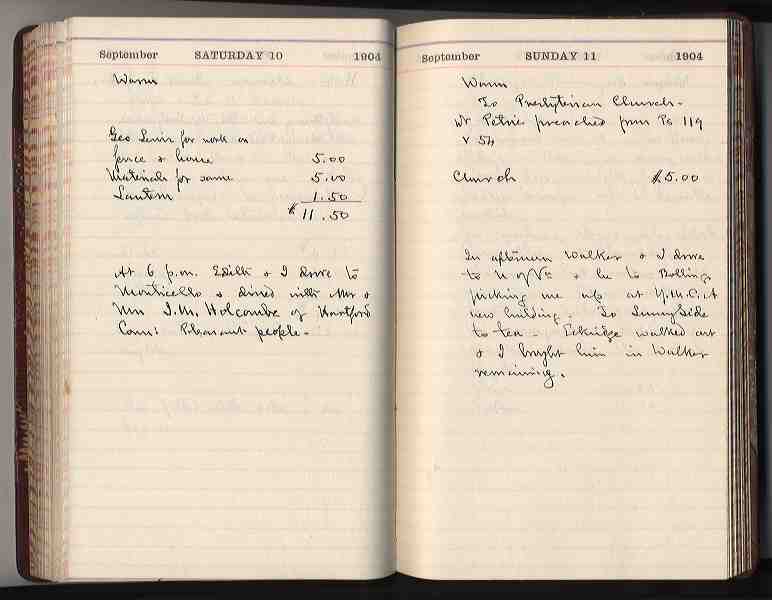 September SATURDAY 10 1904
Warm
Geo for work on
fence & house 5.00
Materials for same 5.00
Lantern 1.50
$ 11.50
At 6 p.m. Edith & I drove to
Monticello & dined with Mr &
Mrs J.M. Holcombe of Hartford
Conn: Pleasant people.
September SUNDAY 11 1904
Warm
To Presbyterian Church.
Mr Petrie preached from Ps 119
v 54
Church $5.00
In afternoon Walker & I drove
to U of Va & he to
picking me up at Y.M.C.A
new building. To Sunny Side
to tea. walked out
& I brought him in Walker
remaining.